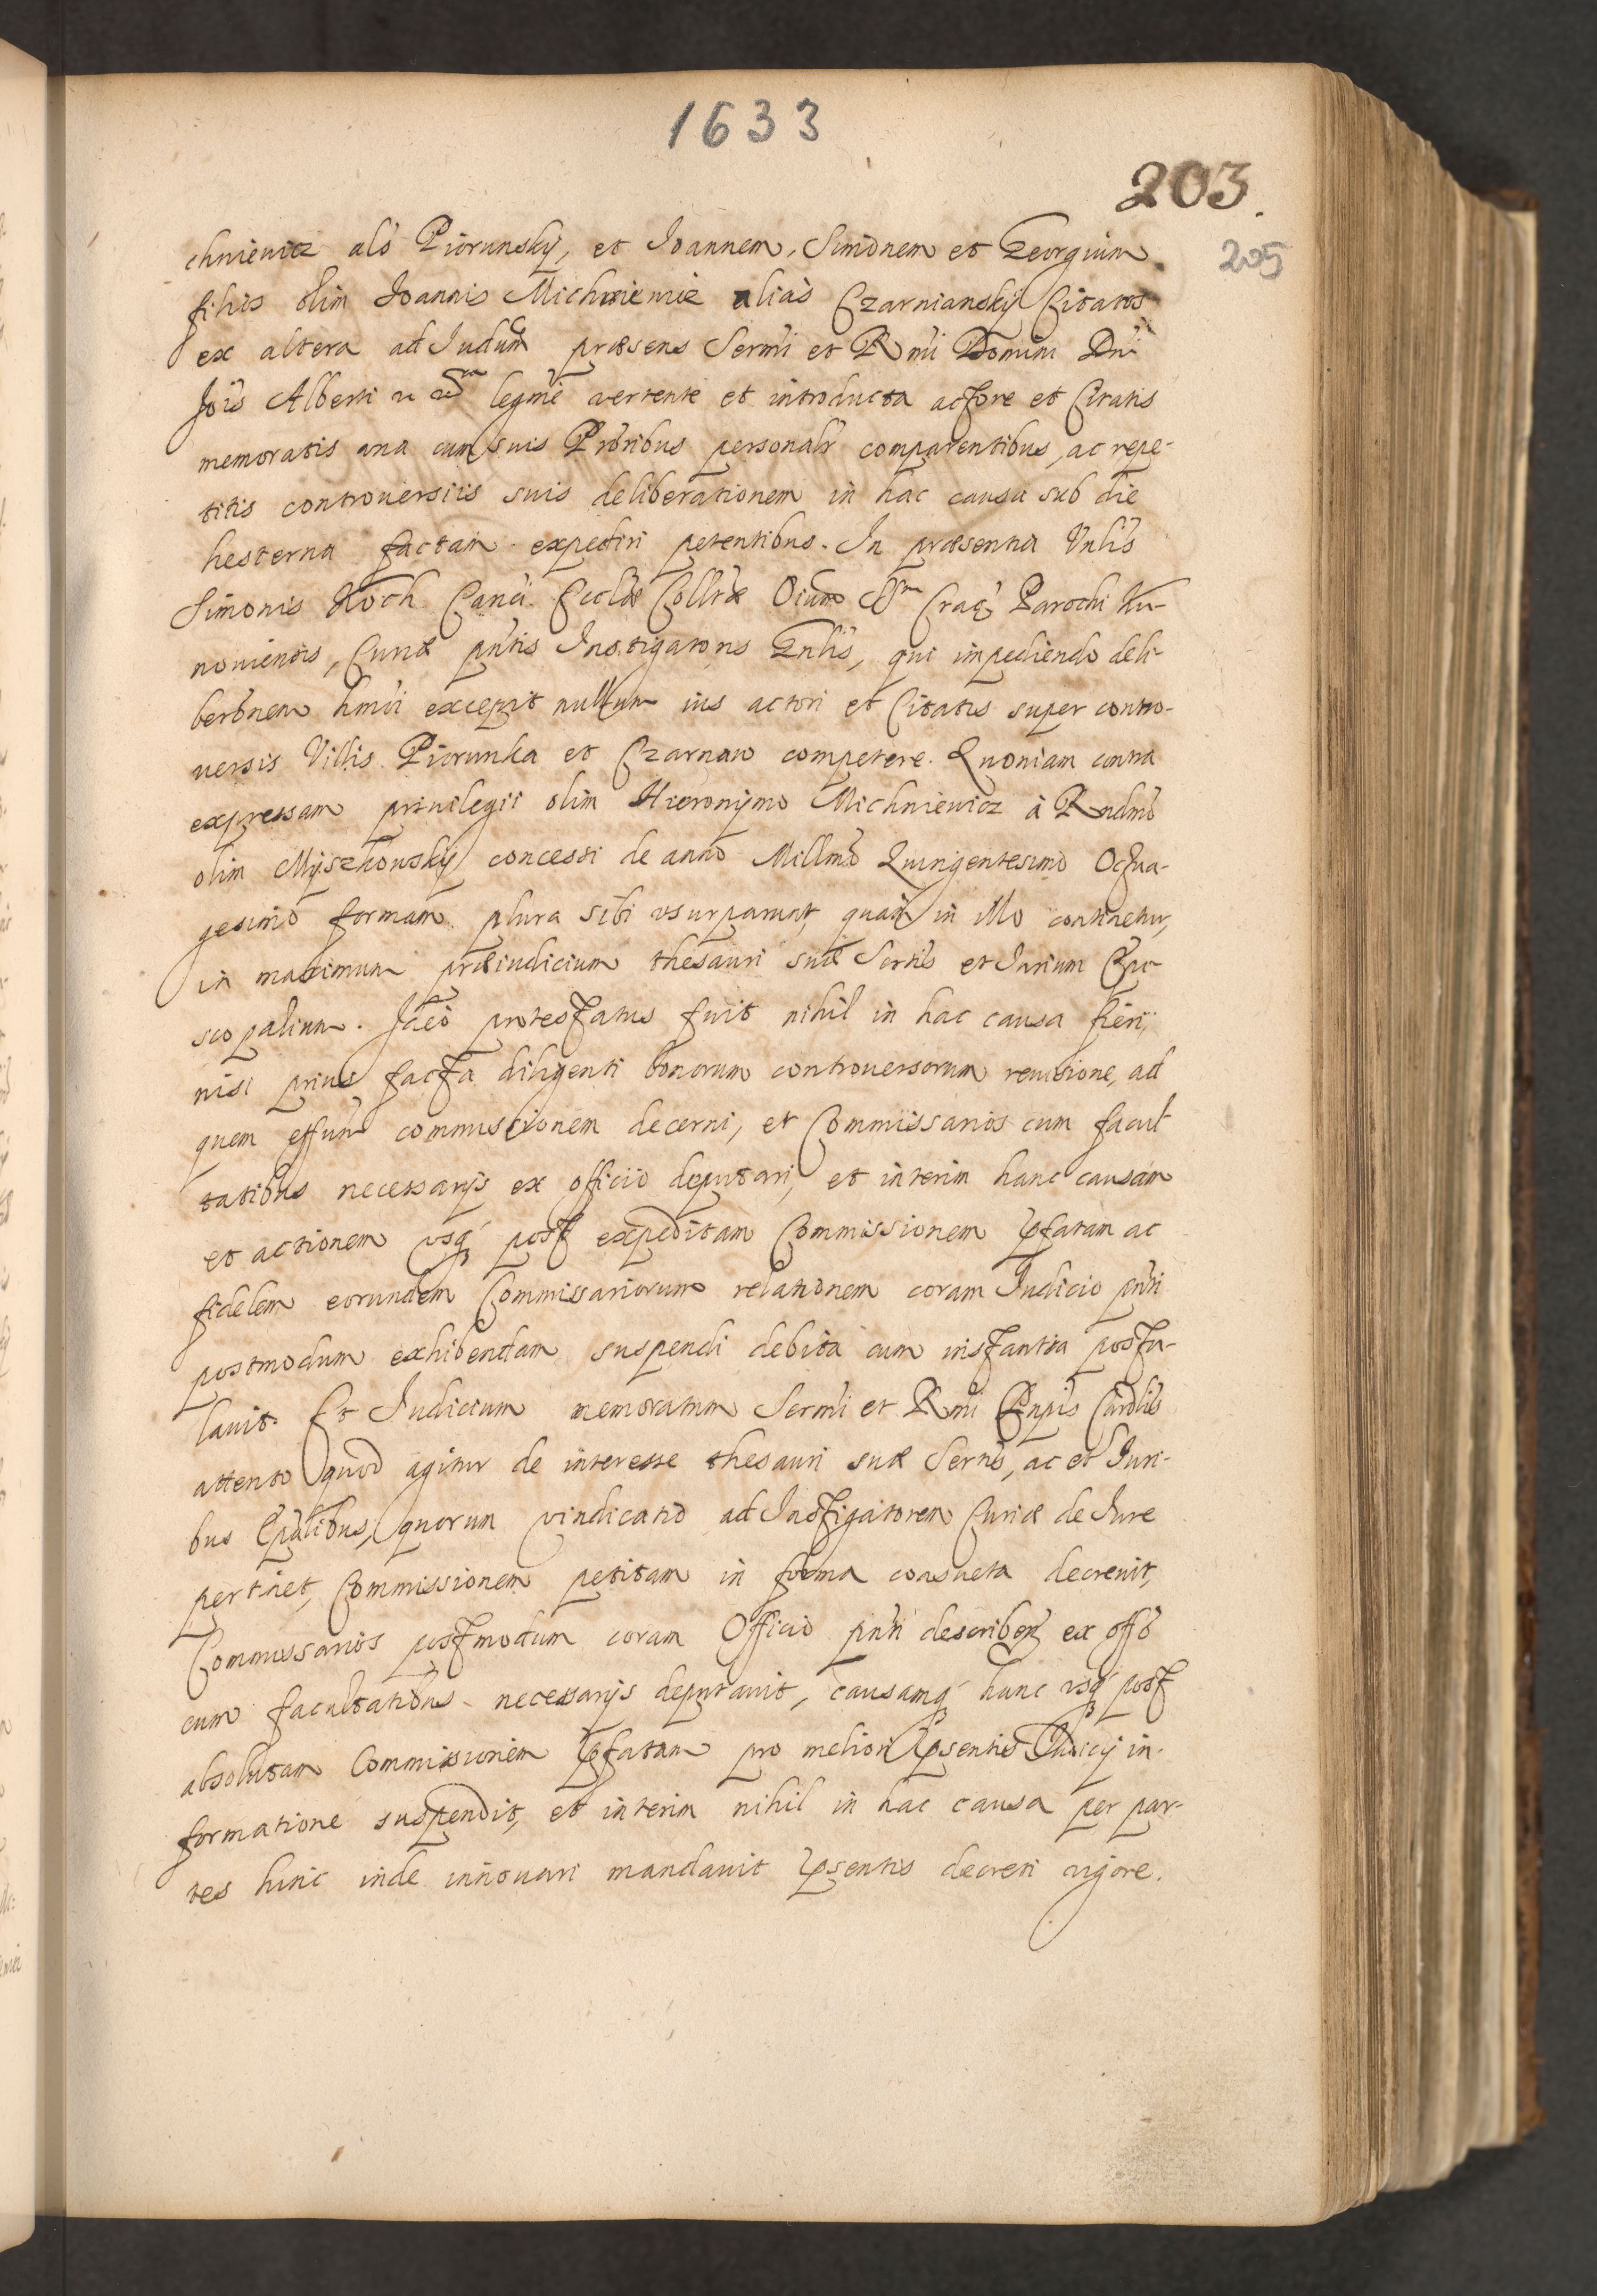 1633
203.
205
chniewicz als Piorunskÿ, et Joannem, Simonem et Georgium
filios olim Joannis Michniewic alias Czarnianskÿ Citatos
ex altera ad Judum præsens Sermi et Rmi Domini Dni
Jois Alberti legme vertente et introducta actore et Citatis
memoratis una cum suis Proribus personalr comparentibus, ac repe-
titis controuersiis suis deliberationem in hac causa sub die
hesterna factam expediri petentibus. In præsentia Vnlis
Simonis Koch Canci Ecclæ Colltæ Oium Crac Parochi Ku-
nouiensis, Curiæ pntis Instigatoris Gnlis, qui impediendo deli-
berõnem hmõi excepit nullum ius actori et Citatis super contro-
uersis Villis Piorunka et Czarnaw competere. Quoniam contra
expressam priuilegii olim Hieronÿmo Michniewicz à Rndmo
olim Mÿszkouskÿ concessi de anno Millmo Quingentesimo Octua-
gesimo formam plura sibi vsurparunt, quam in illo continetur,
in maximum præiudicium thesauri suæ Sertis et Jurium Epi-
scopalium. Ideo protestatus fuit nihil in hac causa fieri,
nisi prius facta diligenti bonorum controuersorum reuisione, ad
quem effum commissionem decerni, et Commissarios cum facul
tatibus necessarÿs ex officio deputari, et interim hanc causam
et actionem vsq post expeditam Commissionem pfatam ac
fidelem eorundem Commissariorum relationem coram Judicio pnti
postmodum exhibendam suspendi debita cum instantia postu-
lauit. Et Judicium memoratum Sermi et Rmi Pnpis Cardlis
attento quod agitur de interesse thesauri suæ Sertis, ac et Juri-
bus Epalibus, quorum vindicatio ad Instigatorem Curiæ de Jure
pertinet, Commissionem petitam in forma consueta decreuit,
Commissarios postmodum coram Officio pnti describen ex offo
cum facultatibus necessarÿs deputauit, causamq hanc vsq post
absolutam Commissionem pfatam pro meliori psentis Judicÿ in-
formatione suspendit, et interim nihil in hac causa per par-
tes hinc inde innouari mandauit psentis decreti vigore.